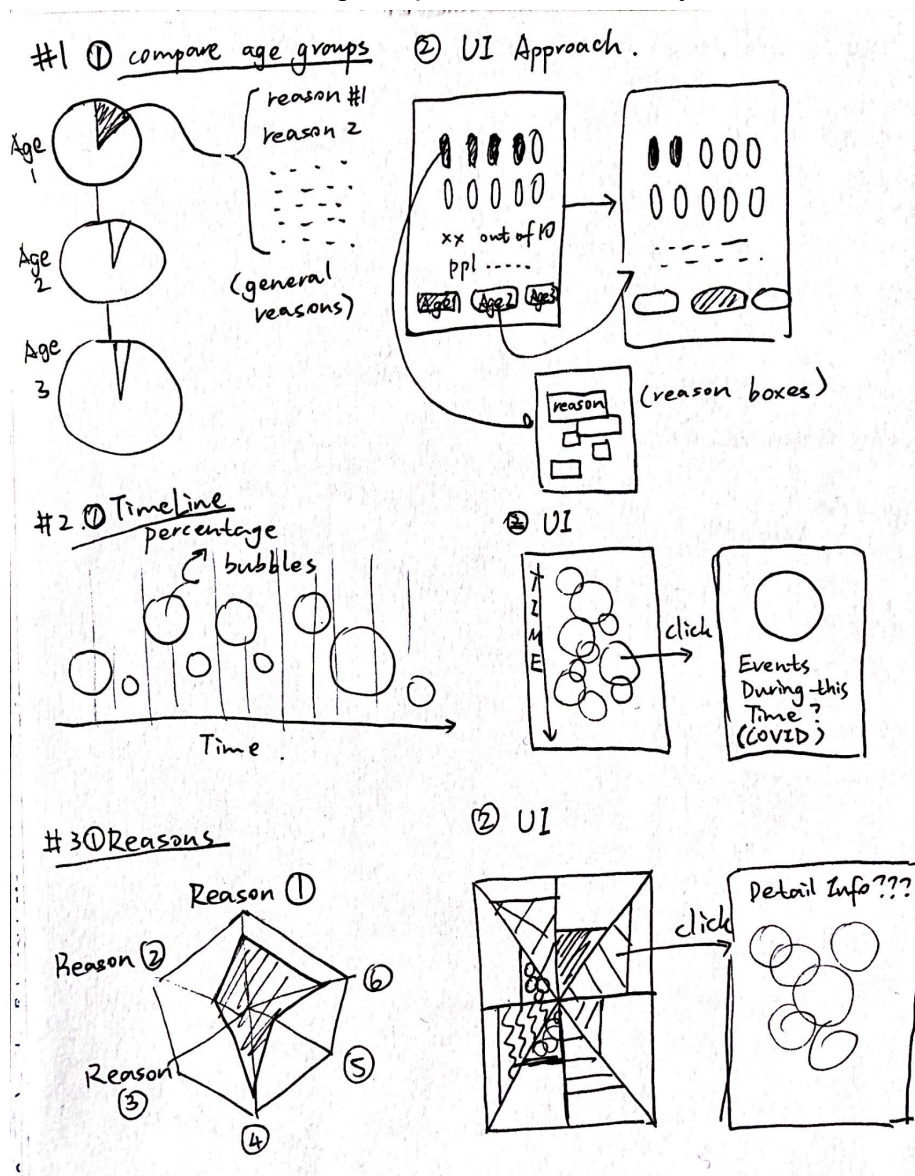 #1 ① compare age groups
Age 1
Age 2
Age 3
reason #1
reason 2
(general
reasons)
② UI Approach.
xx out of 10
ppl ......
Age1 Age2 Age3
reason
(reason boxes)
#2. ① TimeLine
percentage
bubbles
Time
② UI
TIME
click
Events
During this
Time?
(COVID)
#3 ① Reasons
Reason ①
Reason ②
Reason ③
④
⑤
⑥
② UI
click
Detail Info???